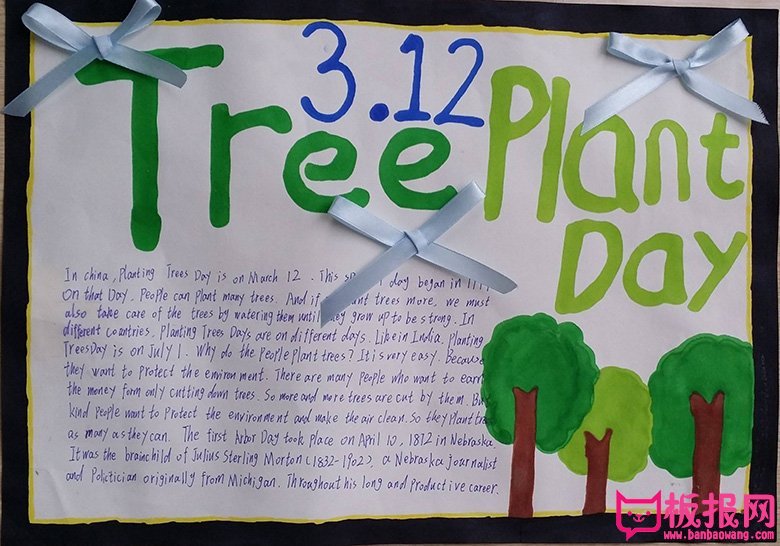 3.12
Tree Plant
Day
In china, Planting Trees Day is on March 12. This day began in
on that Day. People can plant many trees. And if trees more, we must
also take care of the trees by watering them until they grow up to be strong. In
different countries, Planting Trees Days are on different days. Like in India, Planting
Trees Day is on July 1. Why do the People plant trees? It is very easy. Because
they want to protect the environment. There are many people who want to earn
the money form only cutting down trees. So more and more trees are cut by them. But
kind People want to Protect the environment and make the air clean. So they Plant
as many as they can. The first Arbor Day took Place on April 10, 1872 in Nebraska.
It was the brainchild of Julius Sterling Morton (1832-1902), a Nebraska journalist
and Politician originally from Michigan. Throughout his long and productive career.
板报网
www.banbaowang.com